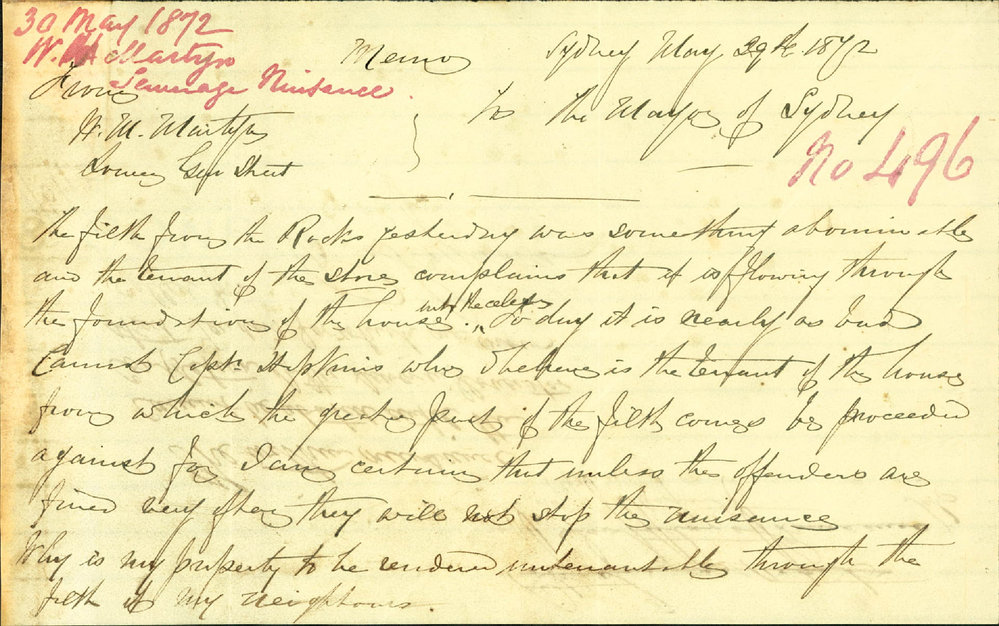 30 May 1872
W. H. Martyn
Sewerage Nuisance.
Memo
Sydney May 29th 1872
From
H. M. Martyn
Lower Geo Street
To the Mayor of Sydney
No 496
the filth from the Rocks yesterday was something abominable
and the tenant of the store complains that it is flowing through
the foundation of the house into the celler. To day it is nearly as bad
Cannot Captn Hopkins who I believe is the tenant of the house
from which the greater part of the filth comes be proceeded
against for I am certain that unless the offenders are
fined very often they will not stop the nuisance
Why is my property to be rendered untenantable through the
filth of my neighbours.